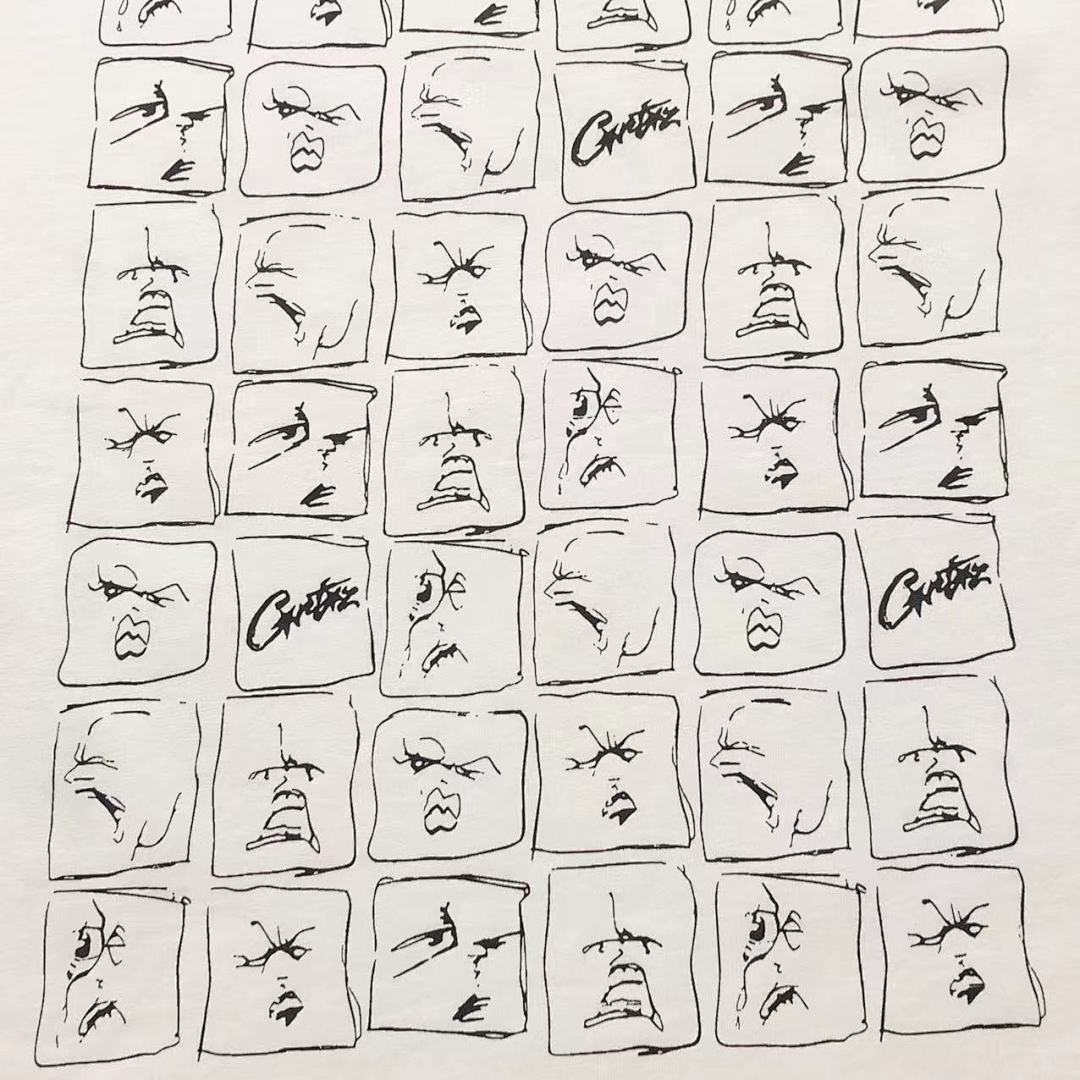 Corteiz
Corteiz
Corteiz